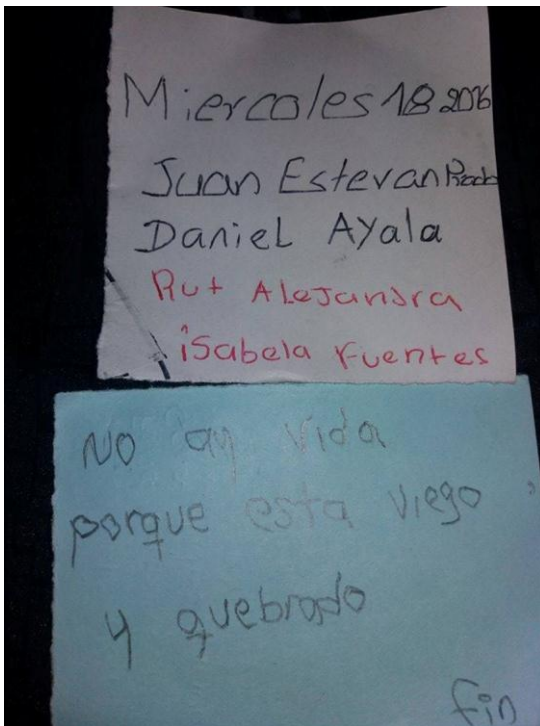 Miercoles 18 2016
Juan Estevan Prado
Daniel Ayala
Rut Alejandra
isabela Fuentes
No ay vida
porque esta viego
y quebrado
fin